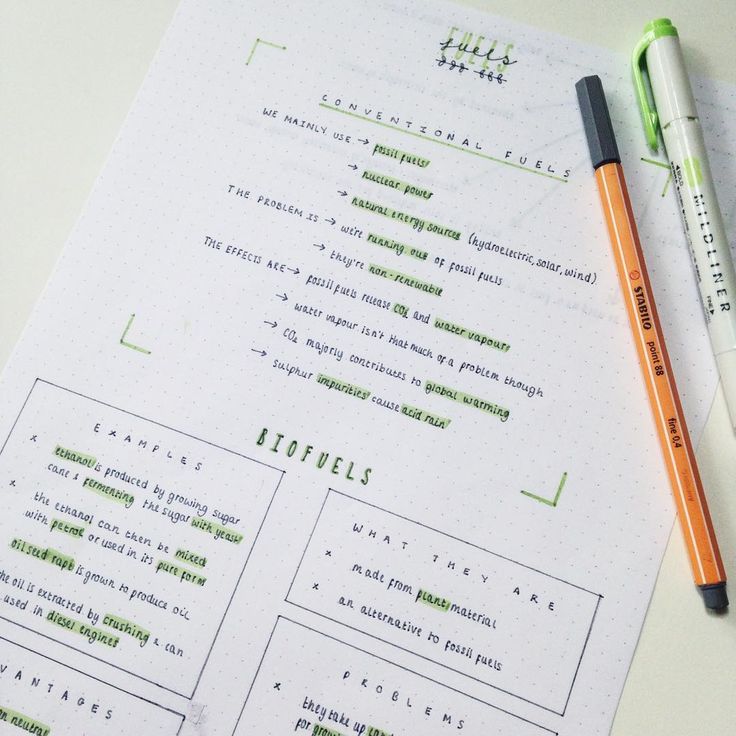 FUELS
fuels
CONVENTIONAL FUELS
WE MAINLY USE → fossil fuels
→ nuclear power
→ natural energy sources (hydroelectric, solar, wind)
THE PROBLEM IS → we're running out of fossil fuels
→ they're non-renewable
THE EFFECTS ARE → fossil fuels release CO₂ and water vapour
→ water vapour isn't that much of a problem though
→ CO₂ majorly contributes to global warming
→ sulphur impurities cause acid rain
BIOFUELS
EXAMPLES
x ethanol is produced by growing sugar
cane & fermenting the sugar with yeast
x the ethanol can then be mixed
with petrol or used in its pure form
oil seed rape is grown to produce oil
the oil is extracted by crushing & can
used in diesel engines
WHAT THEY ARE
x made from plant material
x an alternative to fossil fuels
VANTAGES
neutral
PROBLEMS
x they take up
for
MILDLINER
BOLD
FINE
STABILO
point 88
fine 0,4
Germany